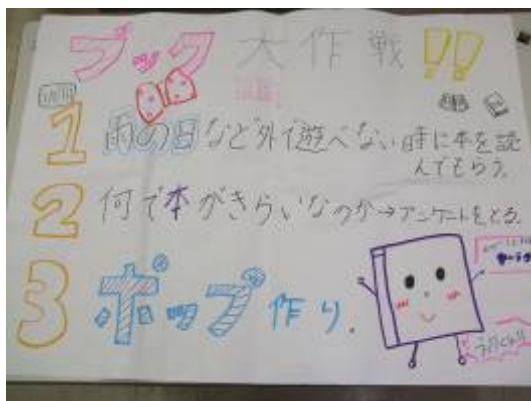 ブック大作戦!!
1 雨の日など外で遊べない時に本を読
んでもらう。
2 何で本がきらいなのか→アンケートをとる。
3 ポップ作り.